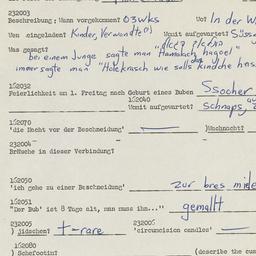 232003
Beschreibung : Wann vorgekommen? 03wks Wo? In der W
Wen eingeladen? Kinder, Verwandte(?) Womit aufgewartet? Süsse
Was gesagt?
bei einem Junge sagte man "Hamsbach hagoel"
immer sagte man "Holekrasch wie solls Kindche has
152032 Ssocher
Feierlichkeit am 1. Freitag nach Geburt eines Buben
152040
Womit aufgewartet? schnaps,
152070
'die Nacht vor der Beschneidung' — )Wachnacht?
232004
Bräuche in dieser Verbindung?
152050
'ich gehe zu einer Beschneidung' zur bres mide
152051
"Der Bub' ist 8 Tage alt, man muss ihn..." gemallt
232005 232006
) jüdischen? t-rare 'circumcision candles' —
152080
) Schefootin? (describe the cus